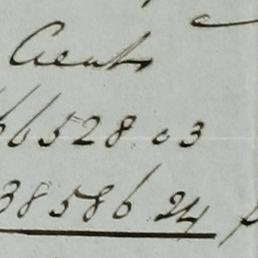 Cents
66528.03
38586 24